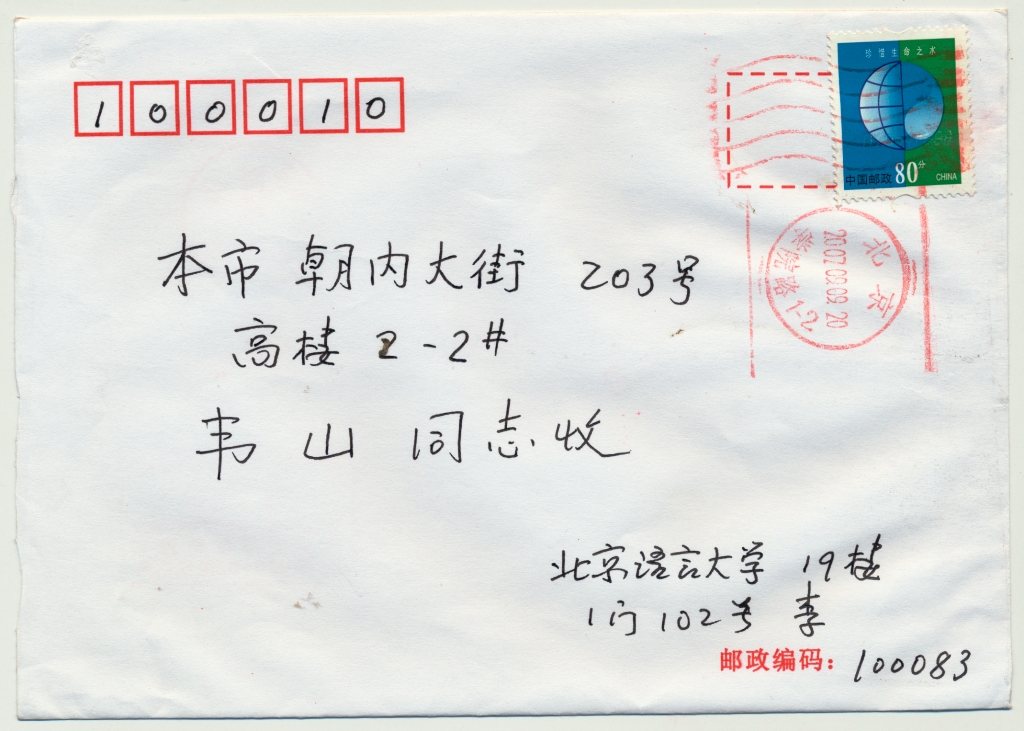 100010
珍惜生命之水
中国邮政 80分 CHINA
北京
2007.09.09.20
学院路 1-2
本市 朝内大街 203号
高楼 2-2#
韦山 同志收
北京语言大学 19楼
1门 102号 李
邮政编码：100083